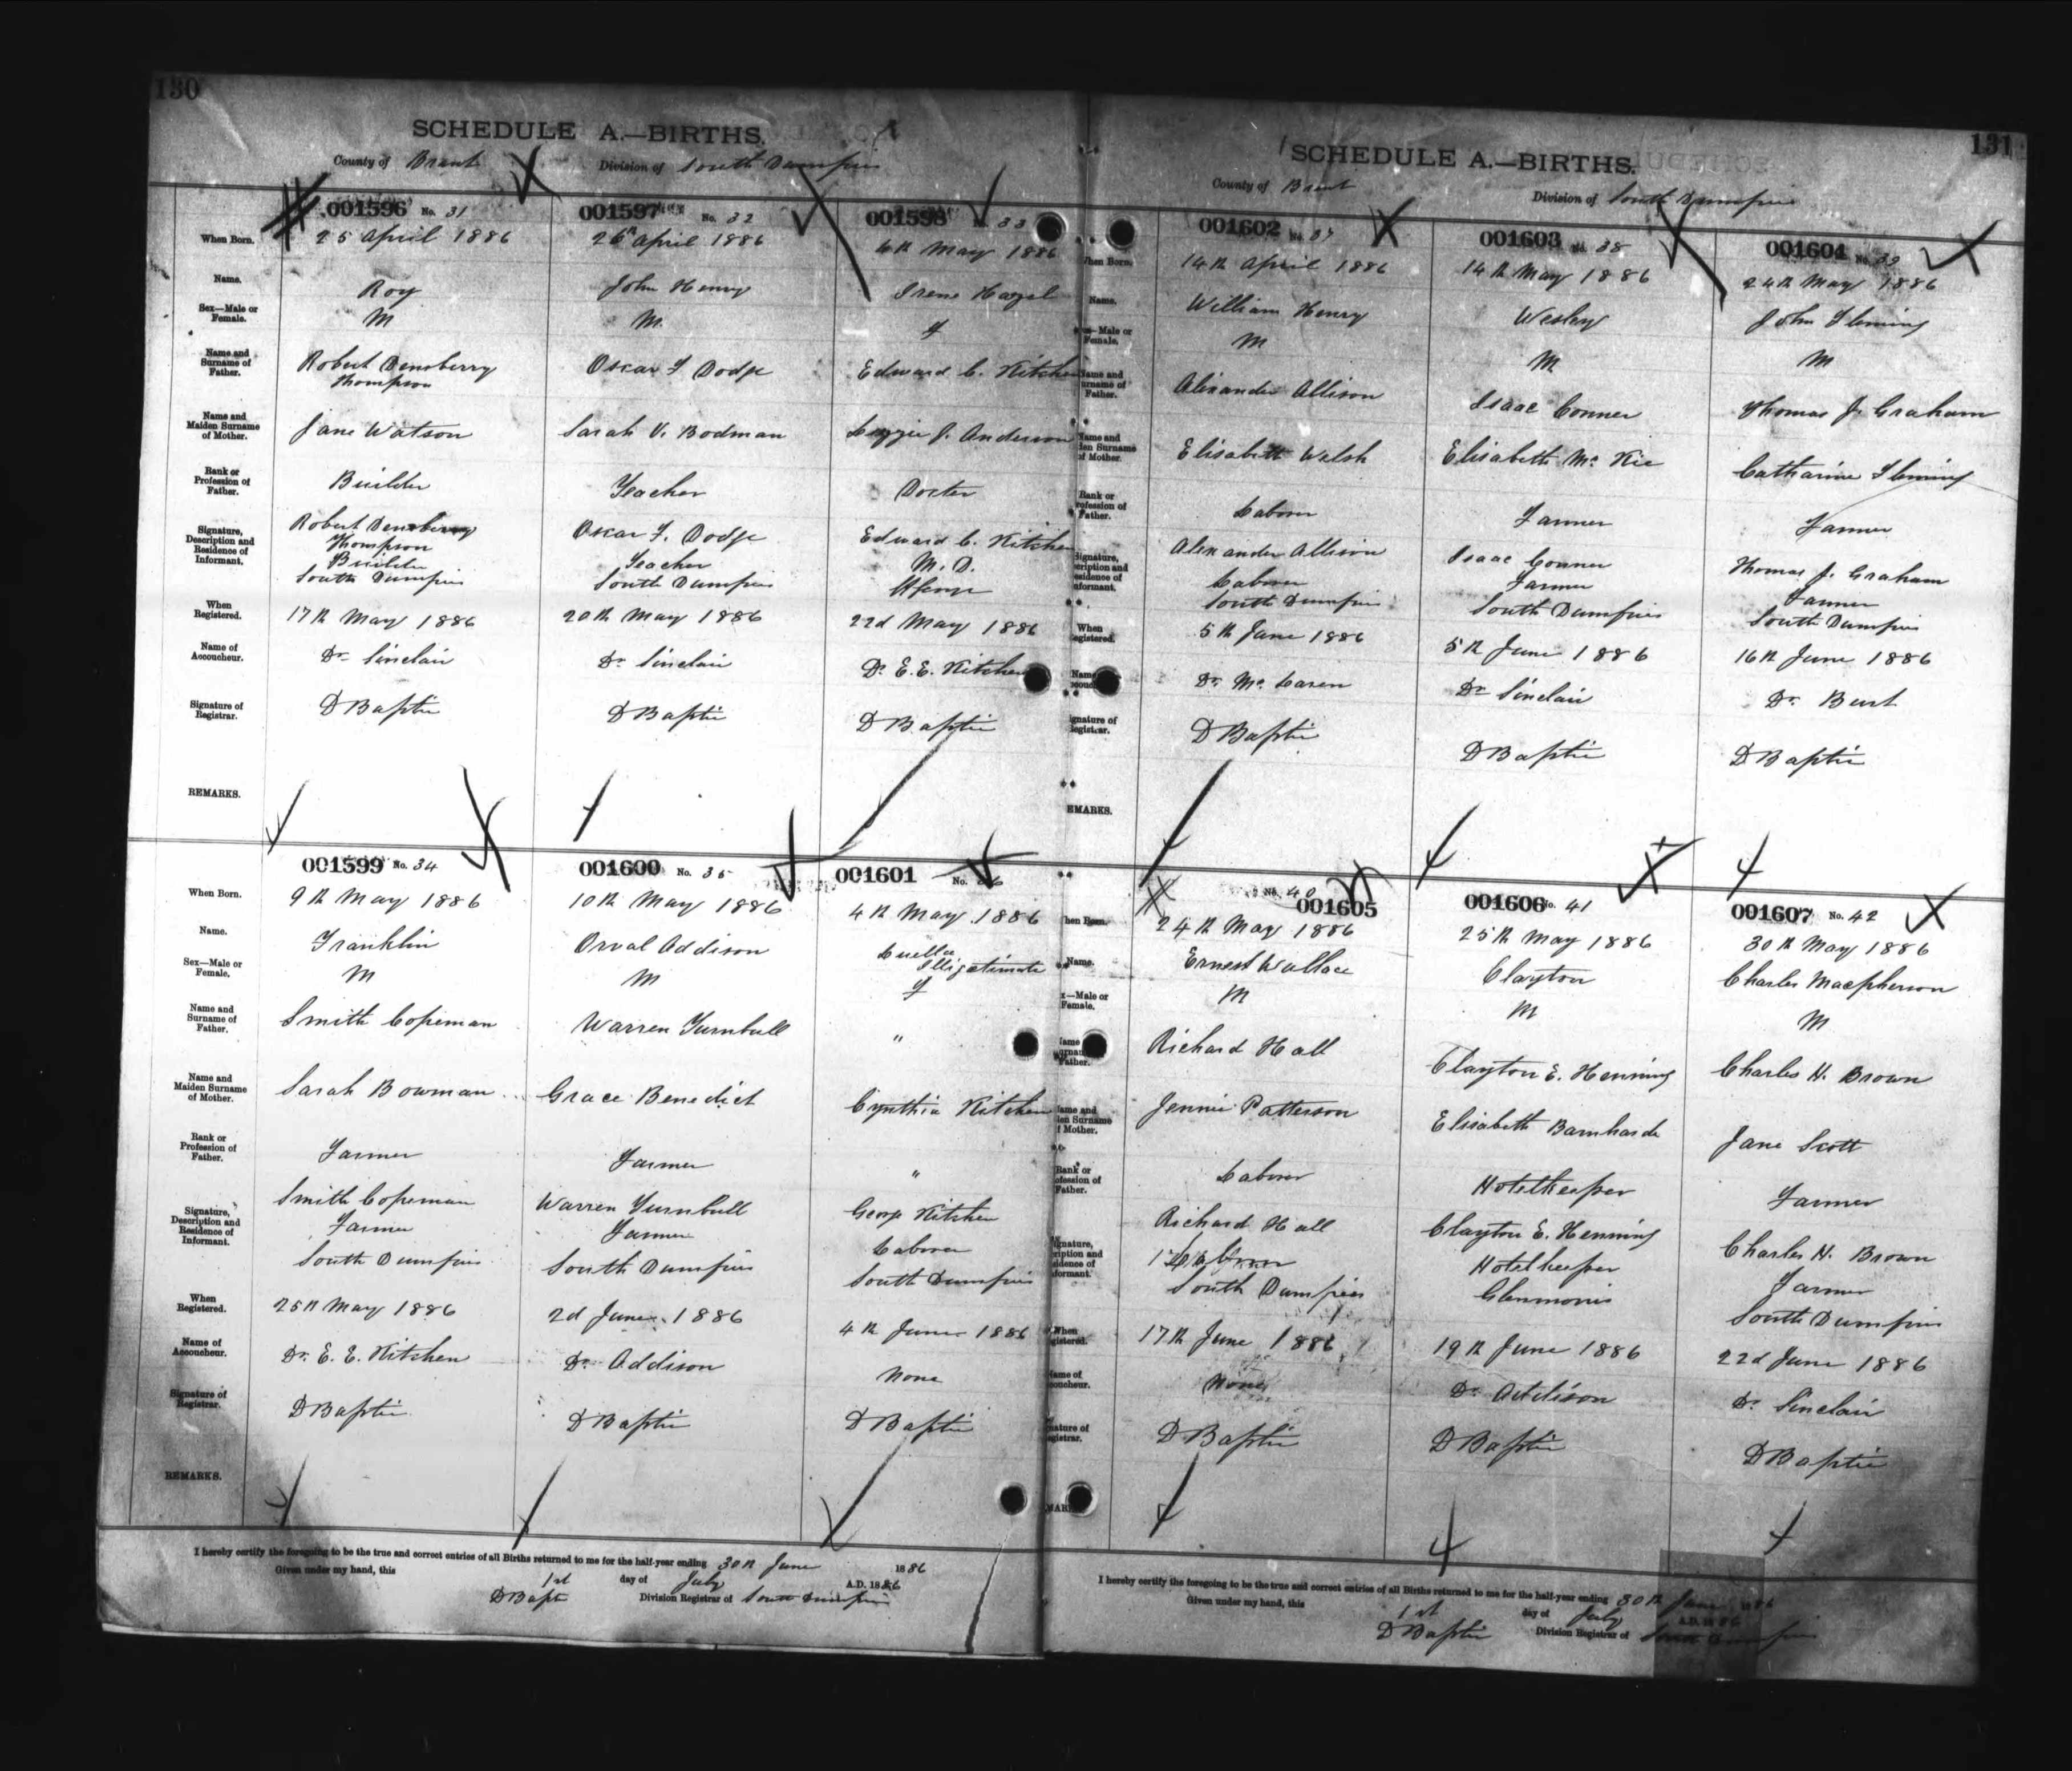 130
SCHEDULE A.—BIRTHS.
County of Brant
Division of South Dumfries
001596 No. 31
001597 No. 32
001598 33
When Born.
25 April 1886
26th April 1886
4th May 1886
Name.
Roy
John Henry
Irene Hazel
Sex—Male or Female.
M
M
f
Name and Surname of Father.
Robert Densberry Thompson
Oscar F Dodge
Edward C. Kitchen
Name and Maiden Surname of Mother.
Jane Watson
Sarah V. Bodman
Lizzie J. Anderson
Rank or Profession of Father.
Builder
Teacher
Docter
Signature, Description and Residence of Informant.
Robert Densberry Thompson
Builder
South Dumfries
Oscar F. Dodge
Teacher
South Dumfries
Edward C. Kitchen
M. D.
St George
When Registered.
17th May 1886
20th May 1886
22d May 1886
Name of Accoucheur.
Dr Sinclair
Dr Sinclair
Dr. E. E. Kitchen
Signature of Registrar.
D Baptie
D Baptie
D Baptie
REMARKS.
001599 No. 34
001600 No. 35
001601 No. 36
When Born.
9th May 1886
10th May 1886
4th May 1886
Name.
Franklin
Orval Addison
Luella
Illigetimate
Sex—Male or Female.
M
M
f
Name and Surname of Father.
Smith Copeman
Warren Turnbull
"
Name and Maiden Surname of Mother.
Sarah Bowman
Grace Benedict
Cynthia Kitchen
Rank or Profession of Father.
Farmer
Farmer
"
Signature, Description and Residence of Informant.
Smith Copeman
Farmer
South Dumfries
Warren Turnbull
Farmer
South Dumfries
George Kitchen
Laborer
South Dumfries
When Registered.
25th May 1886
2d June 1886
4th June 1886
Name of Accoucheur.
Dr. E. E. Kitchen
Dr. Addison
None
Signature of Registrar.
D Baptie
D Baptie
D Baptie
REMARKS.
I hereby certify the foregoing to be the true and correct entries of all Births returned to me for the half-year ending 30th June 1886
Given under my hand, this 1st day of July A.D. 1886
D Baptie Division Registrar of South Dumfries
131
SCHEDULE A.—BIRTHS.
County of Brant
Division of South Dumfries
001602 No. 37
001603 No. 38
001604 No. 39
When Born.
14th April 1886
14th May 1886
24th May 1886
Name.
William Henry
Wesley
John Fleming
Male or Female.
M
M
M
Name and Surname of Father.
Alexander Allison
Isaac Conner
Thomas J. Graham
Name and Maiden Surname of Mother.
Elisabeth Walsh
Elisabeth Mc Kie
Catharine Fleming
Rank or Profession of Father.
Laborer
Farmer
Farmer
Signature, Description and Residence of Informant.
Alexander Allison
Laborer
South Dumfries
Isaac Conner
Farmer
South Dumfries
Thomas J. Graham
Farmer
South Dumfries
When Registered.
5th June 1886
5th June 1886
16th June 1886
Name
Dr. Mc. Laren
Dr Sinclair
Dr. Burt
Signature of Registrar.
D Baptie
D Baptie
D Baptie
REMARKS.
No. 40 001605
001606 No. 41
001607 No. 42
When Born.
24th May 1886
25th May 1886
30th May 1886
Name.
Ernest Wallace
Clayton
Charles Macpherson
Male or Female.
M
M
M
Name Surname Father.
Richard Hall
Clayton E. Henning
Charles H. Brown
Name and Maiden Surname of Mother.
Jennie Patterson
Elisabeth Barnharde
Jane Scott
Rank or Profession of Father.
Laborer
Hotelkeeper
Farmer
Signature, Description and Residence of Informant.
Richard Hall
Laborer
South Dumfries
Clayton E. Henning
Hotelkeeper
Glenmorris
Charles H. Brown
Farmer
South Dumfries
When Registered.
17th June 1886
19th June 1886
22d June 1886
Name of Accoucheur.
None
Dr. Addison
Dr. Sinclair
Signature of Registrar.
D Baptie
D Baptie
D Baptie
I hereby certify the foregoing to be the true and correct entries of all Births returned to me for the half-year ending 30th June 1886
Given under my hand, this 1st day of July A.D. 1886
D Baptie Division Registrar of South Dumfries